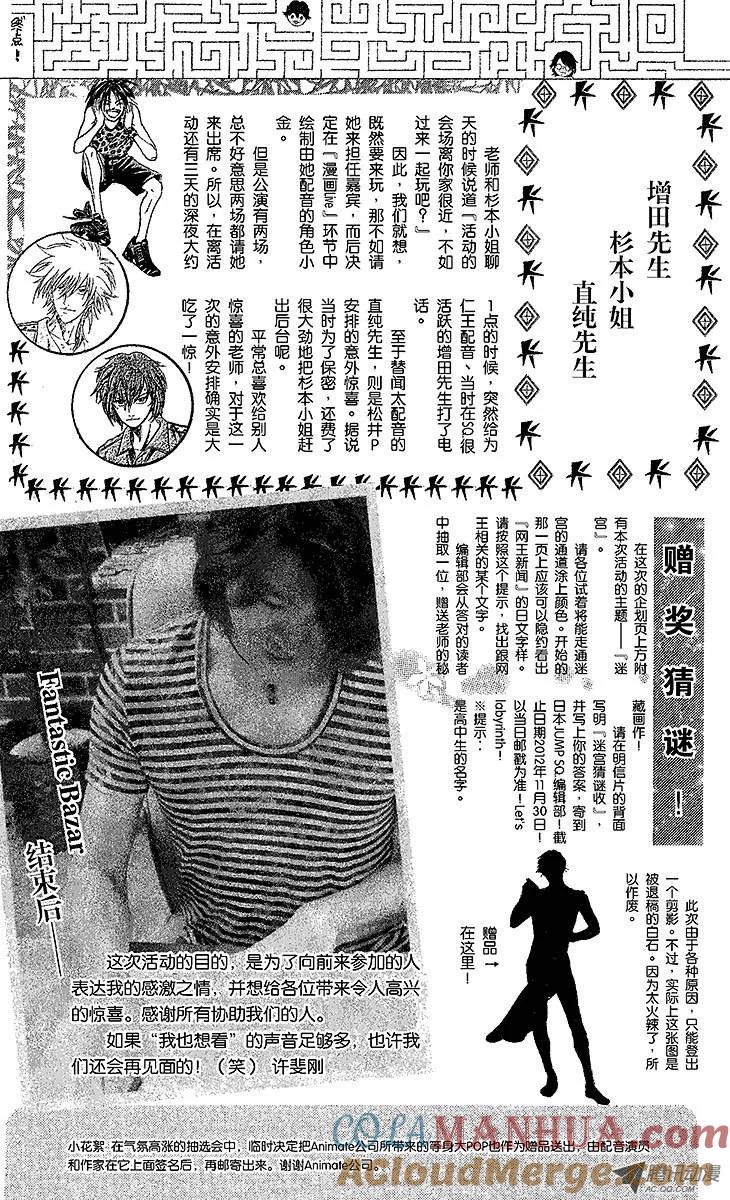 终点！
增田先生
杉本小姐
直纯先生
老师和杉本小姐聊
天的时候说道『活动的
会场离你家很近，不如
过来一起玩吧？』
因此，我们就想，
既然要来玩，那不如请
她来担任嘉宾，而后决
定在『漫画live』环节中
绘制由她配音的角色小
金。
但是公演有两场，
总不好意思两场都请她
来出席。所以，在离活
动还有三天的深夜大约
1点的时候，突然给为
仁王配音、当时在SQ.很
活跃的增田先生打了电
话。
至于替闻太配音的
直纯先生，则是松井P
安排的意外惊喜。据说
当时为了保密，还费了
很大劲地把杉本小姐赶
出后台呢。
平常总喜欢给别人
惊喜的老师，对于这一
次的意外安排确实是大
吃了一惊！
赠奖猜谜！
在这次的企划页上方附
有本次活动的主题——『迷
宫』。
请各位试着将能走通迷
宫的通道涂上颜色。开始的
那一页上应该可以隐约看出
『网王新闻』的日文字样。
请按照这个提示，找出跟网
王相关的某个文字。
编辑部会从答对的读者
中抽取一位，赠送老师的秘
藏画作！
请在明信片的背面
写明『迷宫猜谜收』，
并写上你的答案，寄到
日本JUMP SQ.编辑部！截
止日期2012年11月30日！
以当日邮戳为准！Let's
labyrinth！
※提示：
是高中生的名字。
此次由于各种原因，只能登出
一个剪影。不过，实际上这张图是
被退稿的白石。因为太火辣了，所
以作废。
赠品→
在这里！
Fantastic Bazar
结束后——
这次活动的目的，是为了向前来参加的人
表达我的感激之情，并想给各位带来令人高兴
的惊喜。感谢所有协助我们的人。
如果“我也想看”的声音足够多，也许我
们还会再见面的！（笑） 许斐刚
小花絮 在气氛高涨的抽选会中，临时决定把Animate公司所带来的等身大POP也作为赠品送出，由配音演员
和作家在它上面签名后，再邮寄出来。谢谢Animate公司。
COLAMANHUA.COM
ACloudMerge.com
腾讯动漫
AC.QQ.COM